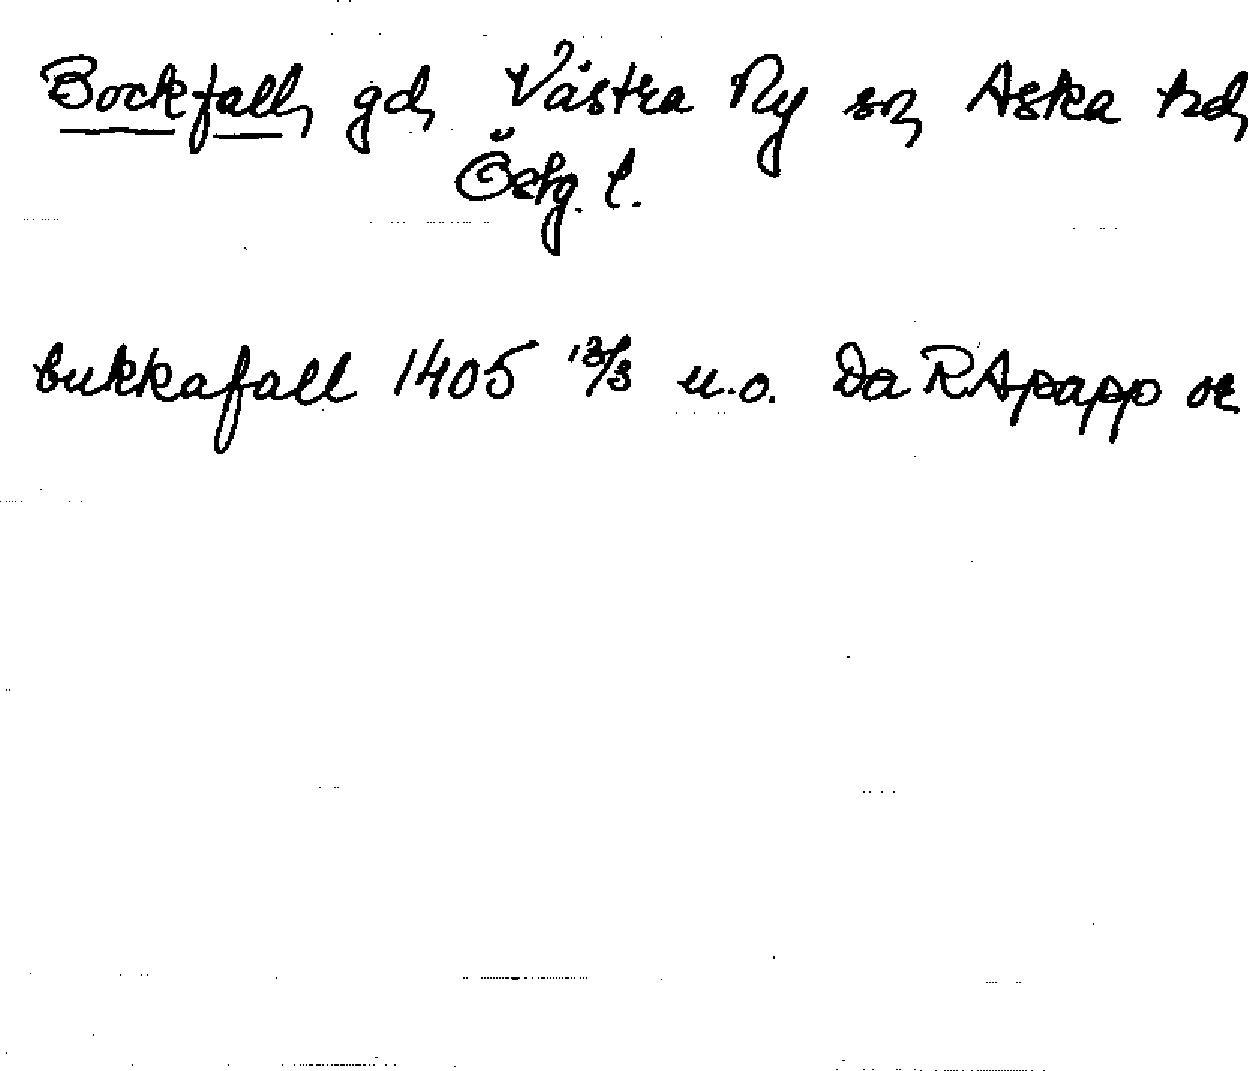 Bockfall, gd, Västra Ny sn, Aska hd,
Östg. l.
bukkafall 1405 13/3 u.o. Da RApapp or